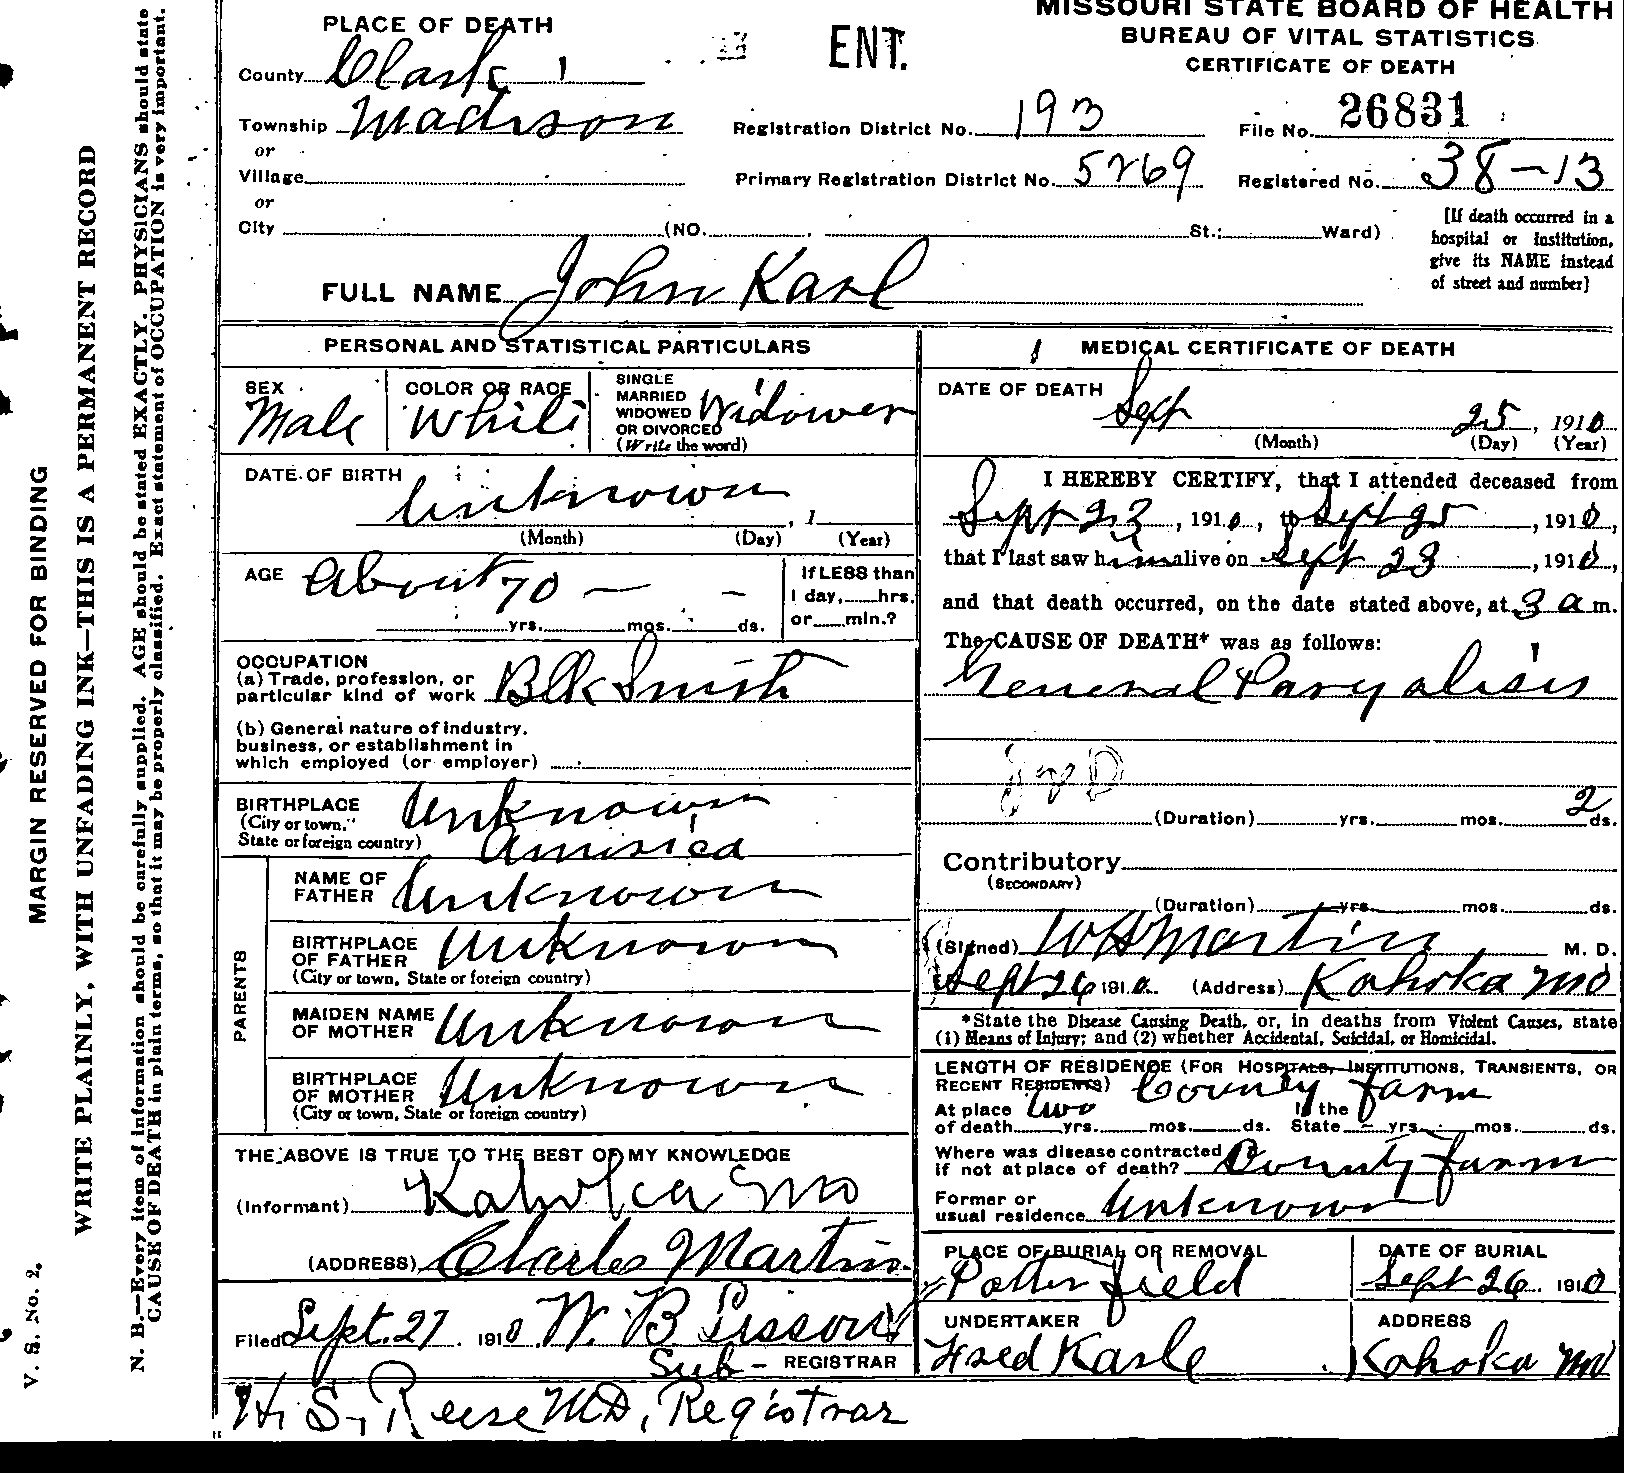 MISSOURI STATE BOARD OF HEALTH
BUREAU OF VITAL STATISTICS
CERTIFICATE OF DEATH
PLACE OF DEATH
ENT.
County Clark
Township Madison
Registration District No. 193
File No. 26831
or
Village
Primary Registration District No. 5269
Registered No. 38-13
or
City (NO. St.; Ward)
[If death occurred in a
hospital or institution,
give its NAME instead
of street and number]
FULL NAME John Karl
PERSONAL AND STATISTICAL PARTICULARS
SEX
Male
COLOR OR RACE
White
SINGLE
MARRIED
WIDOWED
OR DIVORCED
(Write the word)
Widower
DATE OF BIRTH
Unknown
, 1
(Month) (Day) (Year)
AGE
About 70 — –
yrs. mos. ds.
If LESS than
1 day, hrs.
or min.?
OCCUPATION
(a) Trade, profession, or
particular kind of work Blk Smith
(b) General nature of industry,
business, or establishment in
which employed (or employer)
BIRTHPLACE
(City or town,
State or foreign country)
Unknown
America
PARENTS
NAME OF
FATHER Unknown
BIRTHPLACE
OF FATHER Unknown
(City or town, State or foreign country)
MAIDEN NAME
OF MOTHER Unknown
BIRTHPLACE
OF MOTHER Unknown
(City or town, State or foreign country)
THE ABOVE IS TRUE TO THE BEST OF MY KNOWLEDGE
(Informant) Kahoka Mo
(ADDRESS) Charles Martin
Filed Sept. 27, 1910 W. B. Sisson
Sub- REGISTRAR
H. S. Reese MD, Registrar
MEDICAL CERTIFICATE OF DEATH
DATE OF DEATH
Sept 25, 1910
(Month) (Day) (Year)
I HEREBY CERTIFY, that I attended deceased from
Sept 23, 1910, to Sept 25, 1910,
that I last saw him alive on Sept 23, 1910,
and that death occurred, on the date stated above, at 3 a m.
The CAUSE OF DEATH* was as follows:
General Paryalisis
(Duration) yrs. mos. 2 ds.
Contributory
(SECONDARY)
(Duration) yrs. mos. ds.
(Signed) W H Martin M. D.
Sept 26 1910 (Address) Kahoka Mo
*State the Disease Causing Death, or, in deaths from Violent Causes, state
(1) Means of Injury; and (2) whether Accidental, Suicidal, or Homicidal.
LENGTH OF RESIDENCE (FOR HOSPITALS, INSTITUTIONS, TRANSIENTS, OR
RECENT RESIDENTS) County farm
At place two In the
of death yrs. mos. ds. State yrs. mos. ds.
Where was disease contracted
if not at place of death? County farm
Former or
usual residence Unknown
PLACE OF BURIAL OR REMOVAL
Potter field
DATE OF BURIAL
Sept 26 1910
UNDERTAKER
Fred Karle
ADDRESS
Kahoka Mo
MARGIN RESERVED FOR BINDING
WRITE PLAINLY, WITH UNFADING INK—THIS IS A PERMANENT RECORD
N. B.—Every item of information should be carefully supplied. AGE should be stated EXACTLY. PHYSICIANS should state
CAUSE OF DEATH in plain terms, so that it may be properly classified. Exact statement of OCCUPATION is very important.
V. S. No. 2.